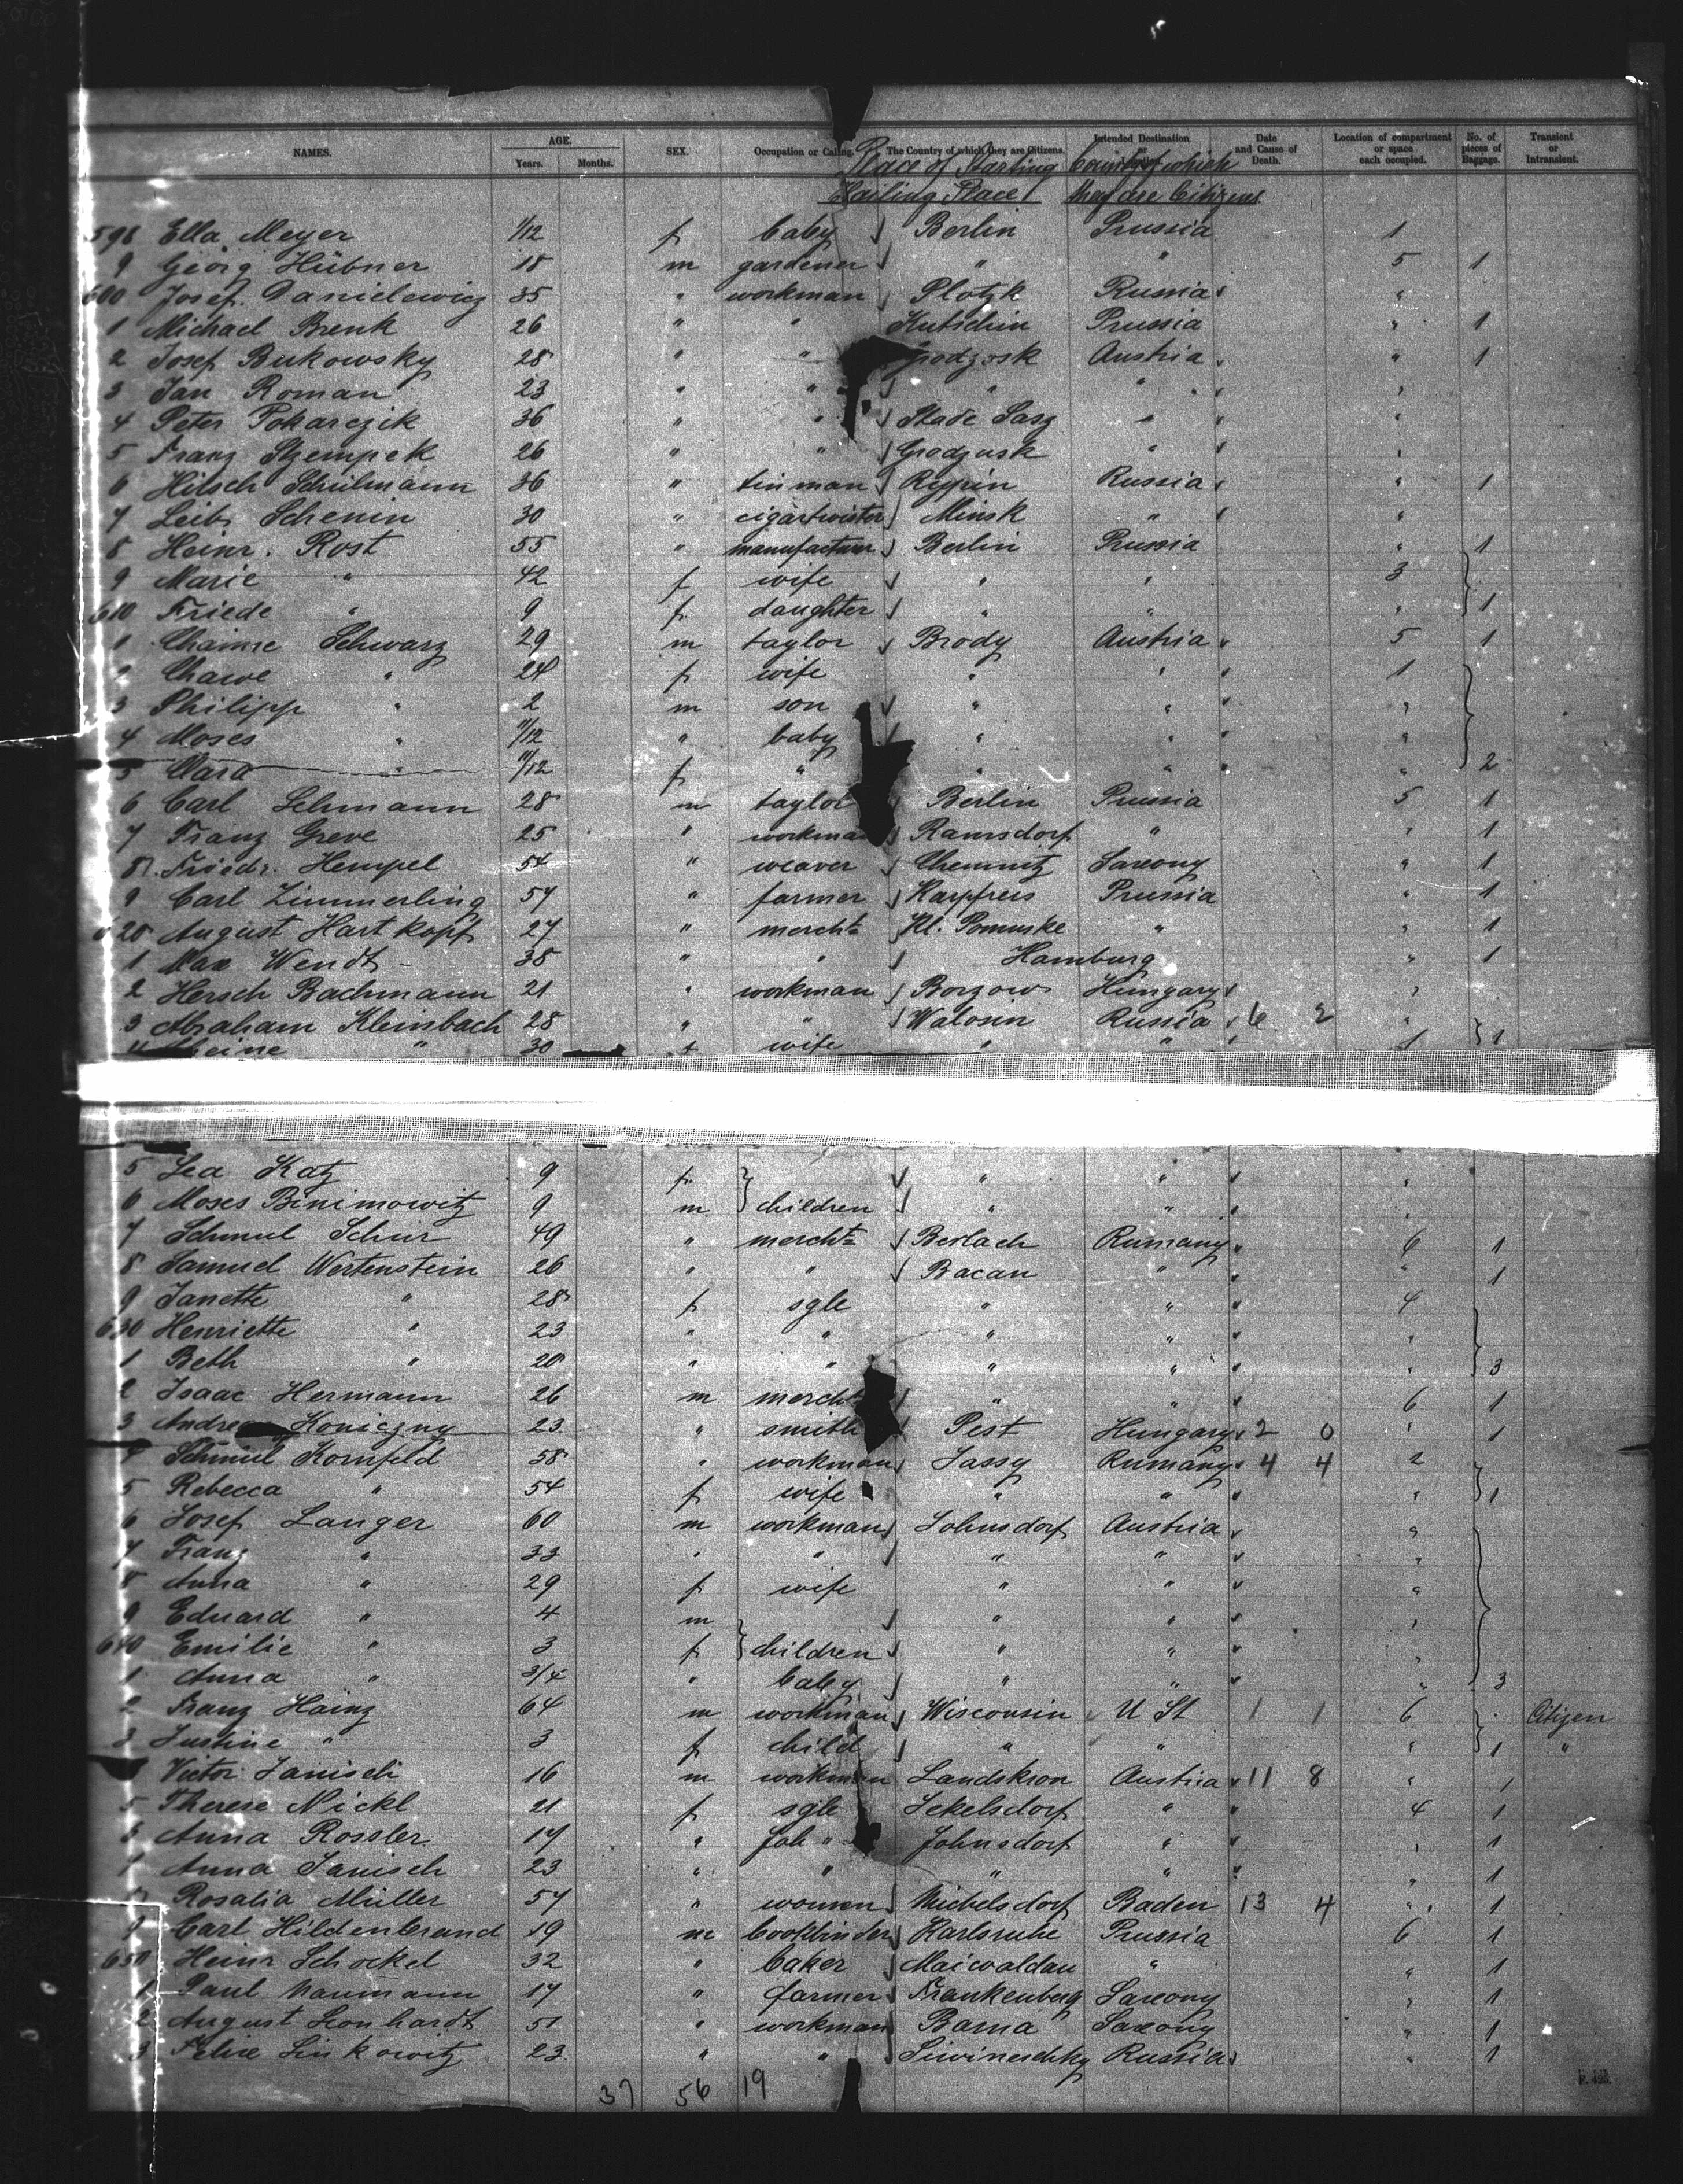 NAMES. AGE. Years. Months. SEX. Occupation or Calling. The Country of which they are Citizens. Intended Destination or Date and Cause of Death. Location of compartment or space each occupied. No. of pieces of Baggage. Transient or Intransient.
Place of Starting Country of which
Hailing Place they are Citizens
598 Ella Meyer 1/12 f baby Berlin Prussia 1
9 Georg Hübner 18 m gardener " " 5 1
600 Josef Danielewicz 35 " workman Plotzk Russia "
1 Michael Brenk 26 " " Kutschin Prussia " 1
2 Josef Bukowsky 28 " " Grodzosk Austria " 1
3 Jan Roman 23 " " " " "
4 Peter Pokarczik 36 " " Stade Sasz " "
5 Franz 26 " " Grodzusk " "
6 Hitsch Schulmann 36 " tinman Rypin Russia " 1
7 Leib Schenin 30 " cigartwister Minsk " "
8 Heinr. Rost 55 " manufacturer Berlin Prussia " 1
9 Marie " 42 f wife " " 3
610 Friede " 9 f daughter " " " 1
1 Chaime Schwarz 29 m taylor Brody Austria 5 1
2 Chawe " 24 f wife " " 1
3 Philipp " 2 m son " " "
4 Moses " 11/12 " baby " " "
5 Clara " 11/12 f " " " " 2
6 Carl Lehmann 28 m taylor Berlin Prussia 5 1
7 Franz Greve 25 " workman Ramsdorf " " 1
8 Friedr. Hempel 54 " weaver Chemnitz Saxony " 1
9 Carl Zimmerling 57 " farmer Karpfreis Prussia " 1
620 August Hartkopf 27 " mercht Kl. Pomuske " " 1
1 Max Wendt 38 " " Hamburg " 1
2 Hersch Bachmann 21 " workman Borzow Hungary "
3 Abraham Kleinsbach 28 " " Walosin Russia 6 2 "
4 " 30 f wife " " 1 1
5 Lea Katz 9 f " " "
6 Moses Binimowitz 9 m children " " "
7 Schmul Schur 49 " mercht Berlach Rumany 6 1
8 Samuel Wertenstein 26 " " Bacau " " 1
9 Janette " 28 f sgle " " 4
630 Henriette " 23 " " " " "
1 Beth " 20 " " " " " 3
2 Isaac Hermann 26 m mercht " " 6 1
3 Andreas Koniczny 23 " smith Pest Hungary 2 0 " 1
4 Schmul Kornfeld 58 " workman Jassy Rumany 4 4 2
5 Rebecca " 54 f wife " " " 1
6 Josef Langer 60 m workman Johnsdorf Austria "
7 Franz " 33 " " " " "
8 Anna " 29 f wife " " "
9 Eduard " 4 m " " "
640 Emilie " 3 f children " " "
1 Anna " 3/4 " baby " " " 3
2 Franz Hainz 64 m workman Wisconsin U St 1 1 6 Citizen
3 Justine " 3 f child " " " 1 "
Victor Janisch 16 m workman Landskron Austria 11 8 " 1
5 Therese Nickl 21 f sgle Jekelsdorf " 4 1
6 Anna Rossler 17 " Joh " Johnsdorf " " 1
7 Anna Janisch 23 " " " " " 1
8 Rosalia Müller 57 " women Michelsdorf Baden 13 4 " 1
9 Carl Hildenbrand 19 m bookbinder Karlsruhe Prussia 6 1
650 Heinr Schockel 32 " baker Maiwaldau " " 1
1 Paul Naumann 17 " farmer Frankenberg Saxony " 1
2 August Leonhardt 51 " workman Barna Saxony " 1
3 Felixe Linkowitz 23 " " Siwineschky Russia " 1
37 56 19